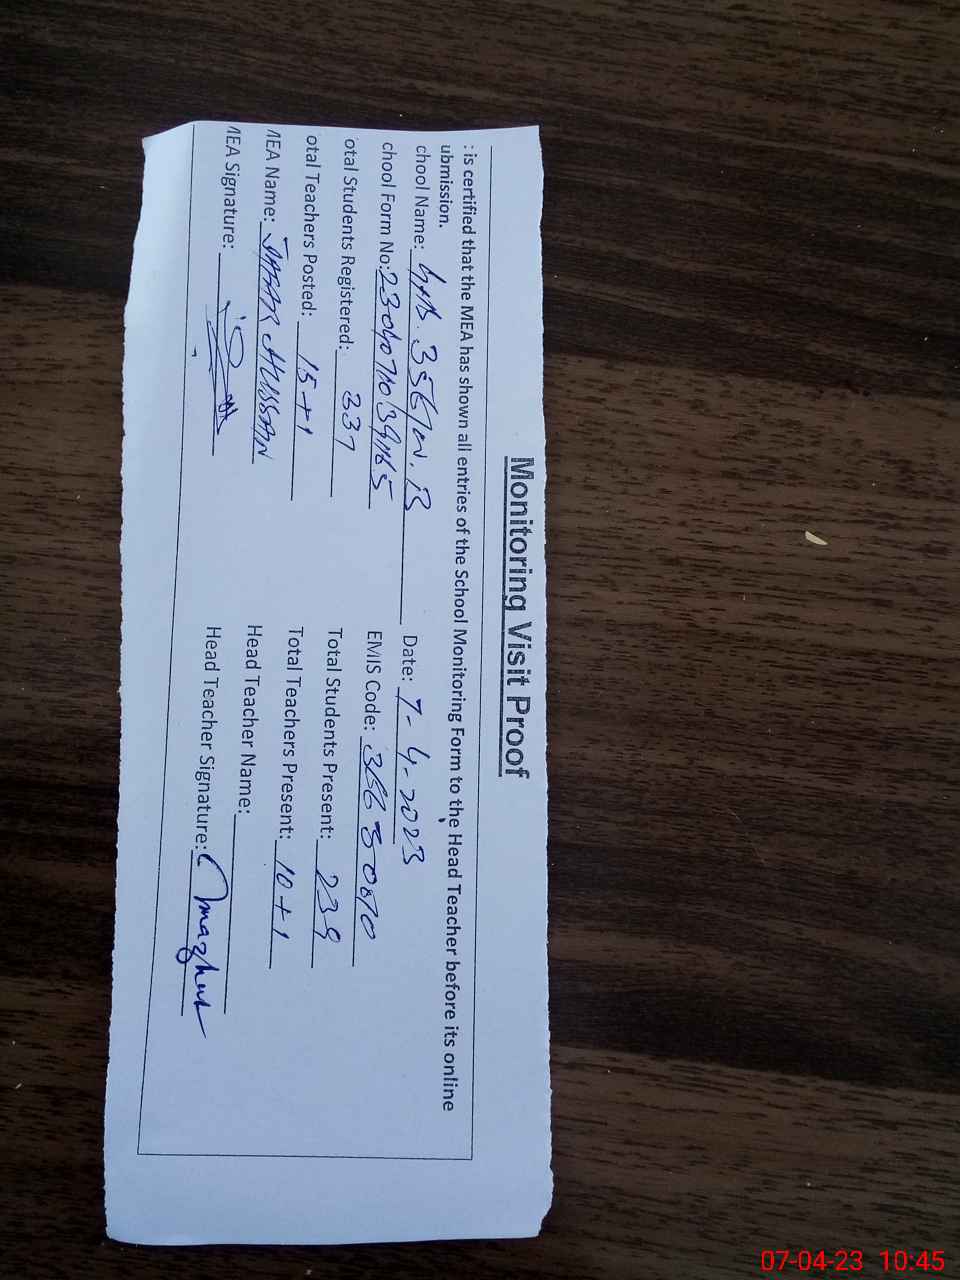 Monitoring Visit Proof
: is certified that the MEA has shown all entries of the School Monitoring Form to the Head Teacher before its online
ubmission.
chool Name: Date: 7-4-2023
chool Form No: EMIS Code:
otal Students Registered: 337 Total Students Present: 239
otal Teachers Posted: 15+1 Total Teachers Present: 10+1
MEA Name: HUSSAN Head Teacher Name:
MEA Signature: Head Teacher Signature:
07-04-23 10:45